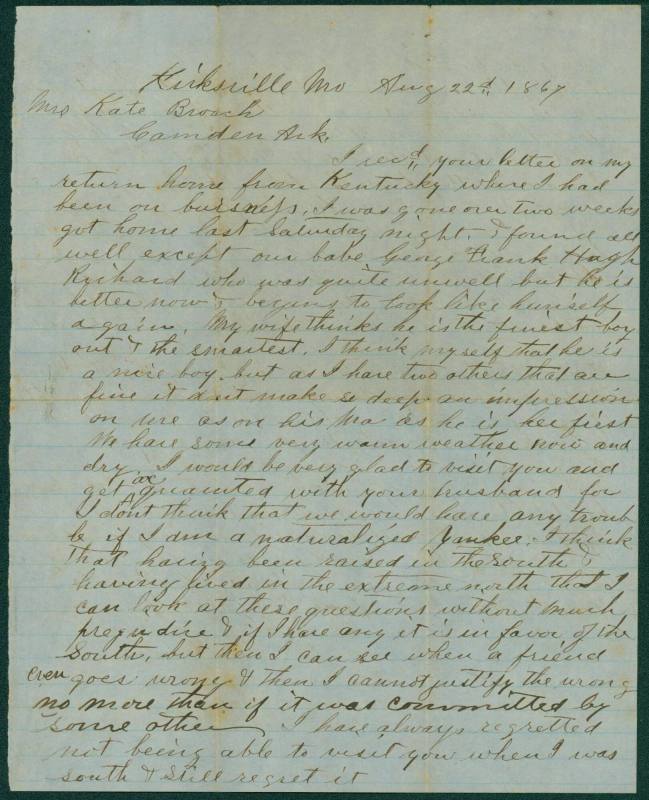 Kirksville Mo Aug 22d, 1867
Mrs Kate Broach
Camden Ark.
I recd, your letter on my
return home from Kentucky where I had
been on buisness, I was gone over two weeks
got home last Saturday night. I found all
well except our babe George Frank Hugh
Richard who was quite unwell but he is
better now & begins to look like himself
again. My wife thinks he is the finest boy
out & the smartest. I think myself that he is
a nice boy. but as I have two others that are
fine it dont make so deep an impression
on me as on his Ma as he is her first
We have some very warm weather now and
dry. I would be very glad to visit you and
get acquainted with your husband for
I dont think that we would have any troub
le if I am a naturalized Yankee. I think
that having been raised in the South &
having lived in the extreme north that I
can look at these questions without much
prejudice & if I have any it is in favor of the
South, but then I can see when a friend
even goes wrong & then I cannot justify the wrong
no more than if it was committed by
some other I have always regretted
not being able to visit you when I was
south & still regret it